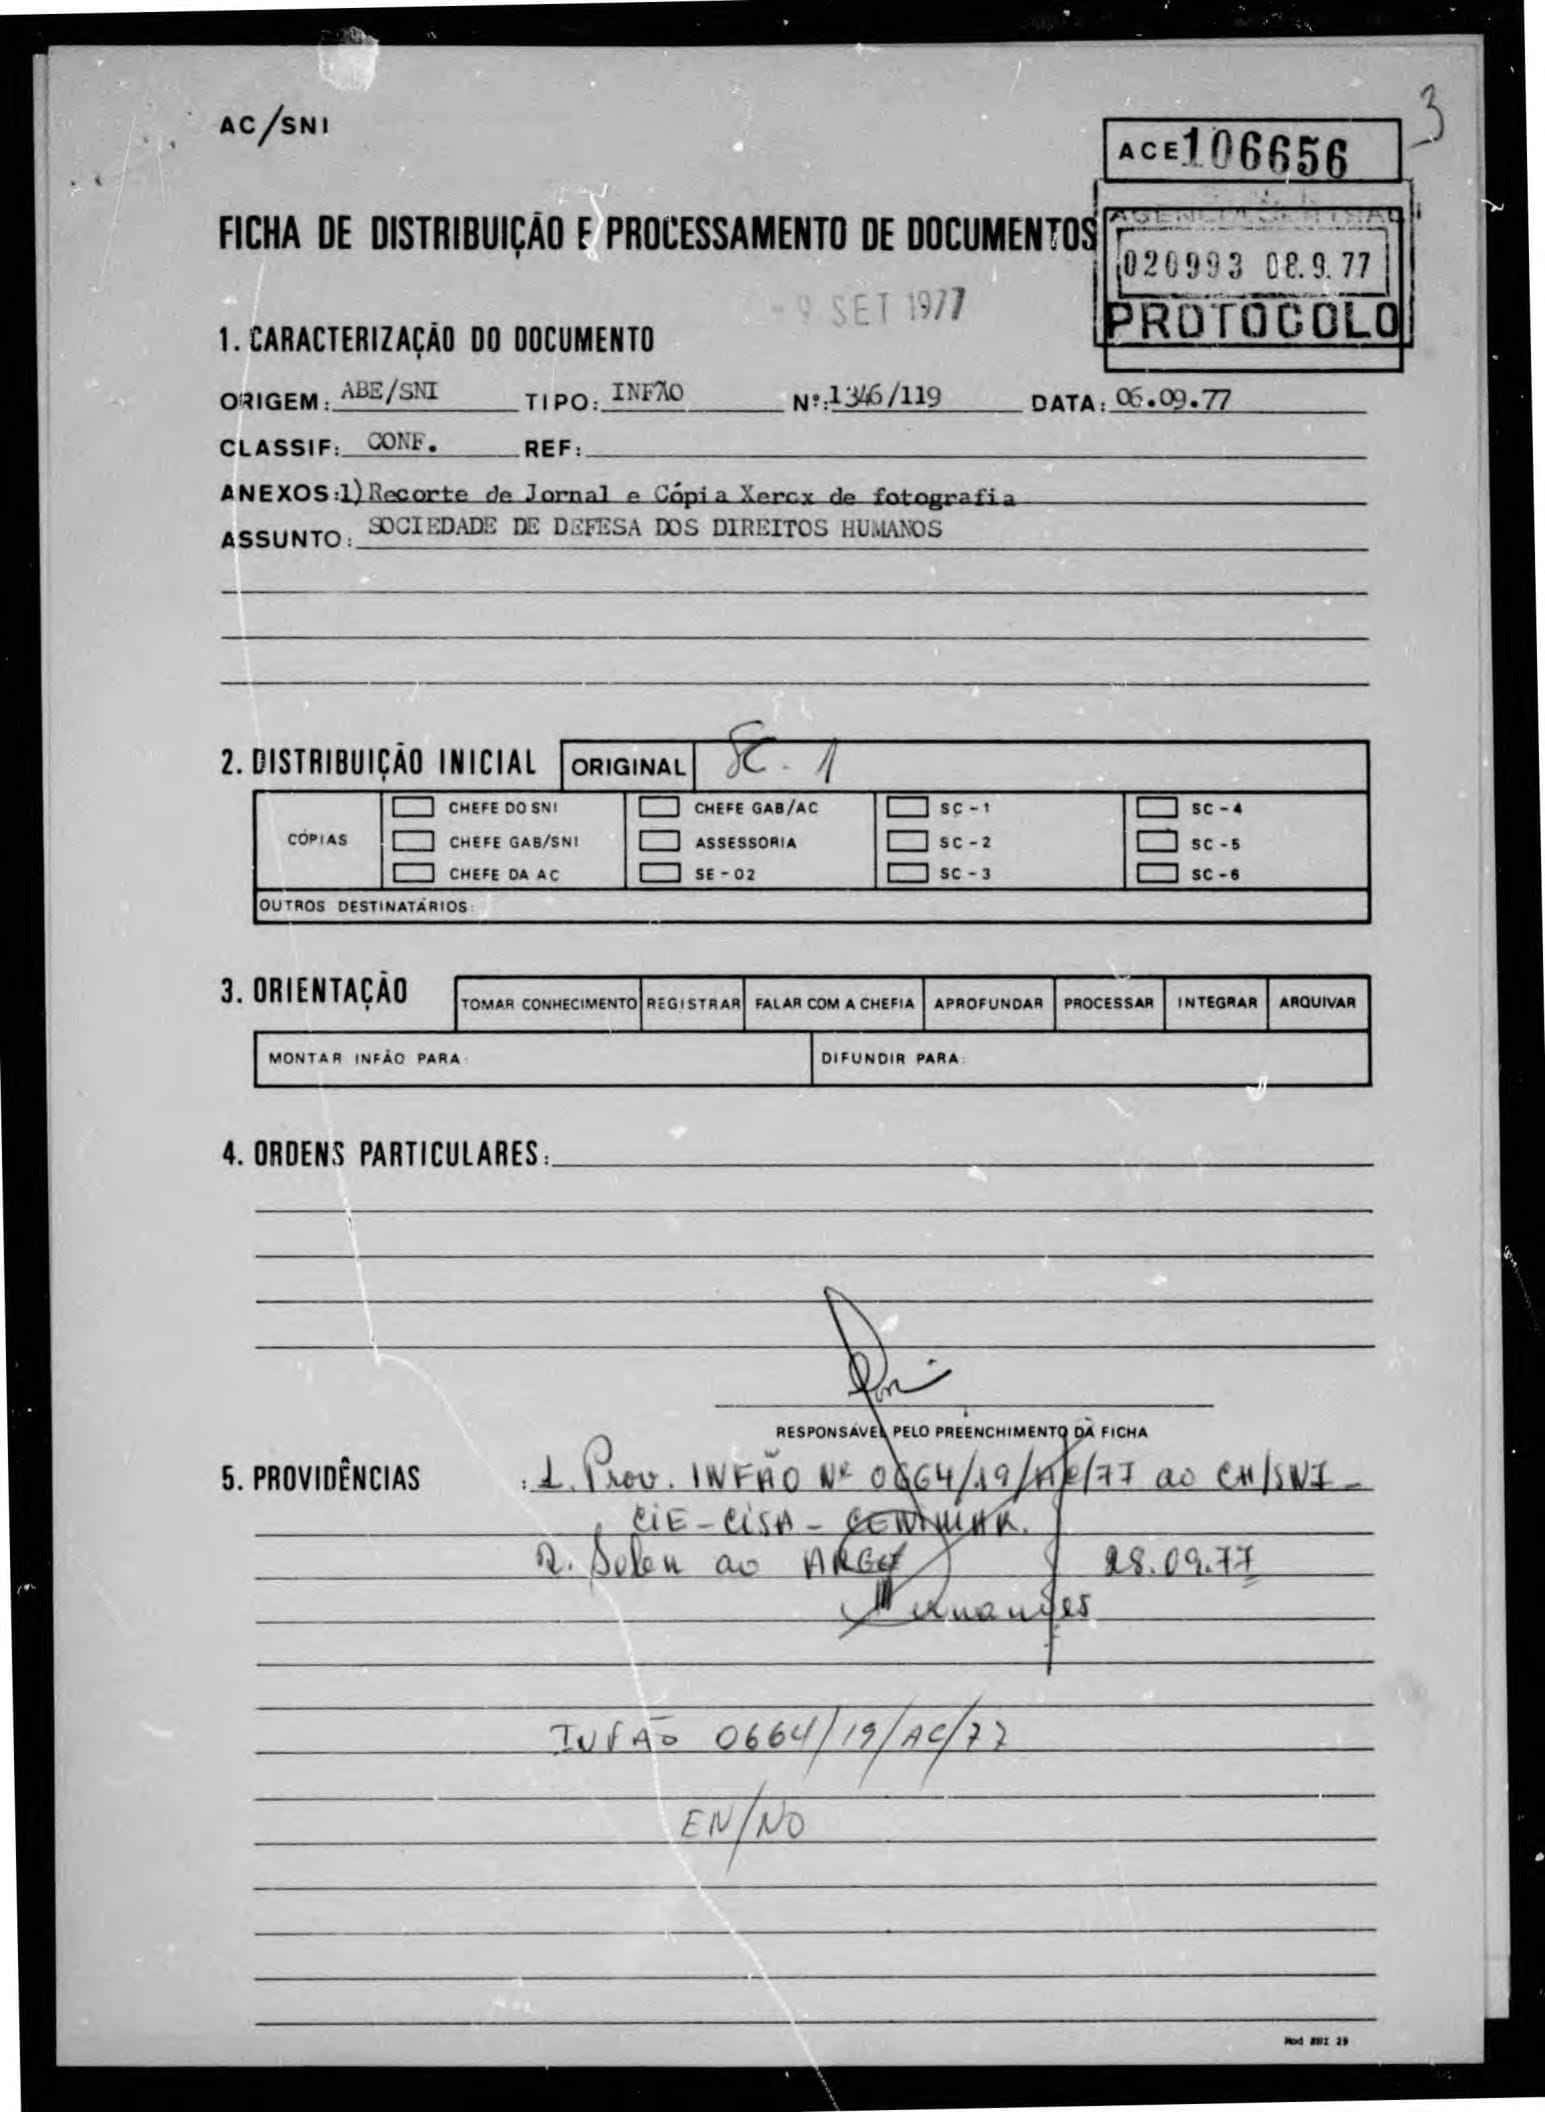 3
AC/SNI
ACE 106656
FICHA DE DISTRIBUIÇÃO E PROCESSAMENTO DE DOCUMENTOS
AGENCIA CENTRAL
020993 08.9.77
PROTOCOLO
- 9 SET 1977
1. CARACTERIZAÇÃO DO DOCUMENTO
ORIGEM: ABE/SNI TIPO: INFÃO Nº: 1346/119 DATA: 06.09.77
CLASSIF: CONF. REF:
ANEXOS: 1) Recorte de Jornal e Cópia Xerox de fotografia
ASSUNTO: SOCIEDADE DE DEFESA DOS DIREITOS HUMANOS
2. DISTRIBUIÇÃO INICIAL ORIGINAL SC - 1
CÓPIAS
CHEFE DO SNI CHEFE GAB/AC SC - 1 SC - 4
CHEFE GAB/SNI ASSESSORIA SC - 2 SC - 5
CHEFE DA AC SE - 02 SC - 3 SC - 6
OUTROS DESTINATÁRIOS:
3. ORIENTAÇÃO TOMAR CONHECIMENTO REGISTRAR FALAR COM A CHEFIA APROFUNDAR PROCESSAR INTEGRAR ARQUIVAR
MONTAR INFÃO PARA: DIFUNDIR PARA:
4. ORDENS PARTICULARES:
RESPONSÁVEL PELO PREENCHIMENTO DA FICHA
5. PROVIDÊNCIAS : 1. Prov. INFÃO Nº 0664/19/AC/77 ao CH/SNI -
CIE - CISA - CENIMAR.
2. ao 28.09.77
INFÃO 0664/19/AC/77
EN/NO
Mod SNI 29